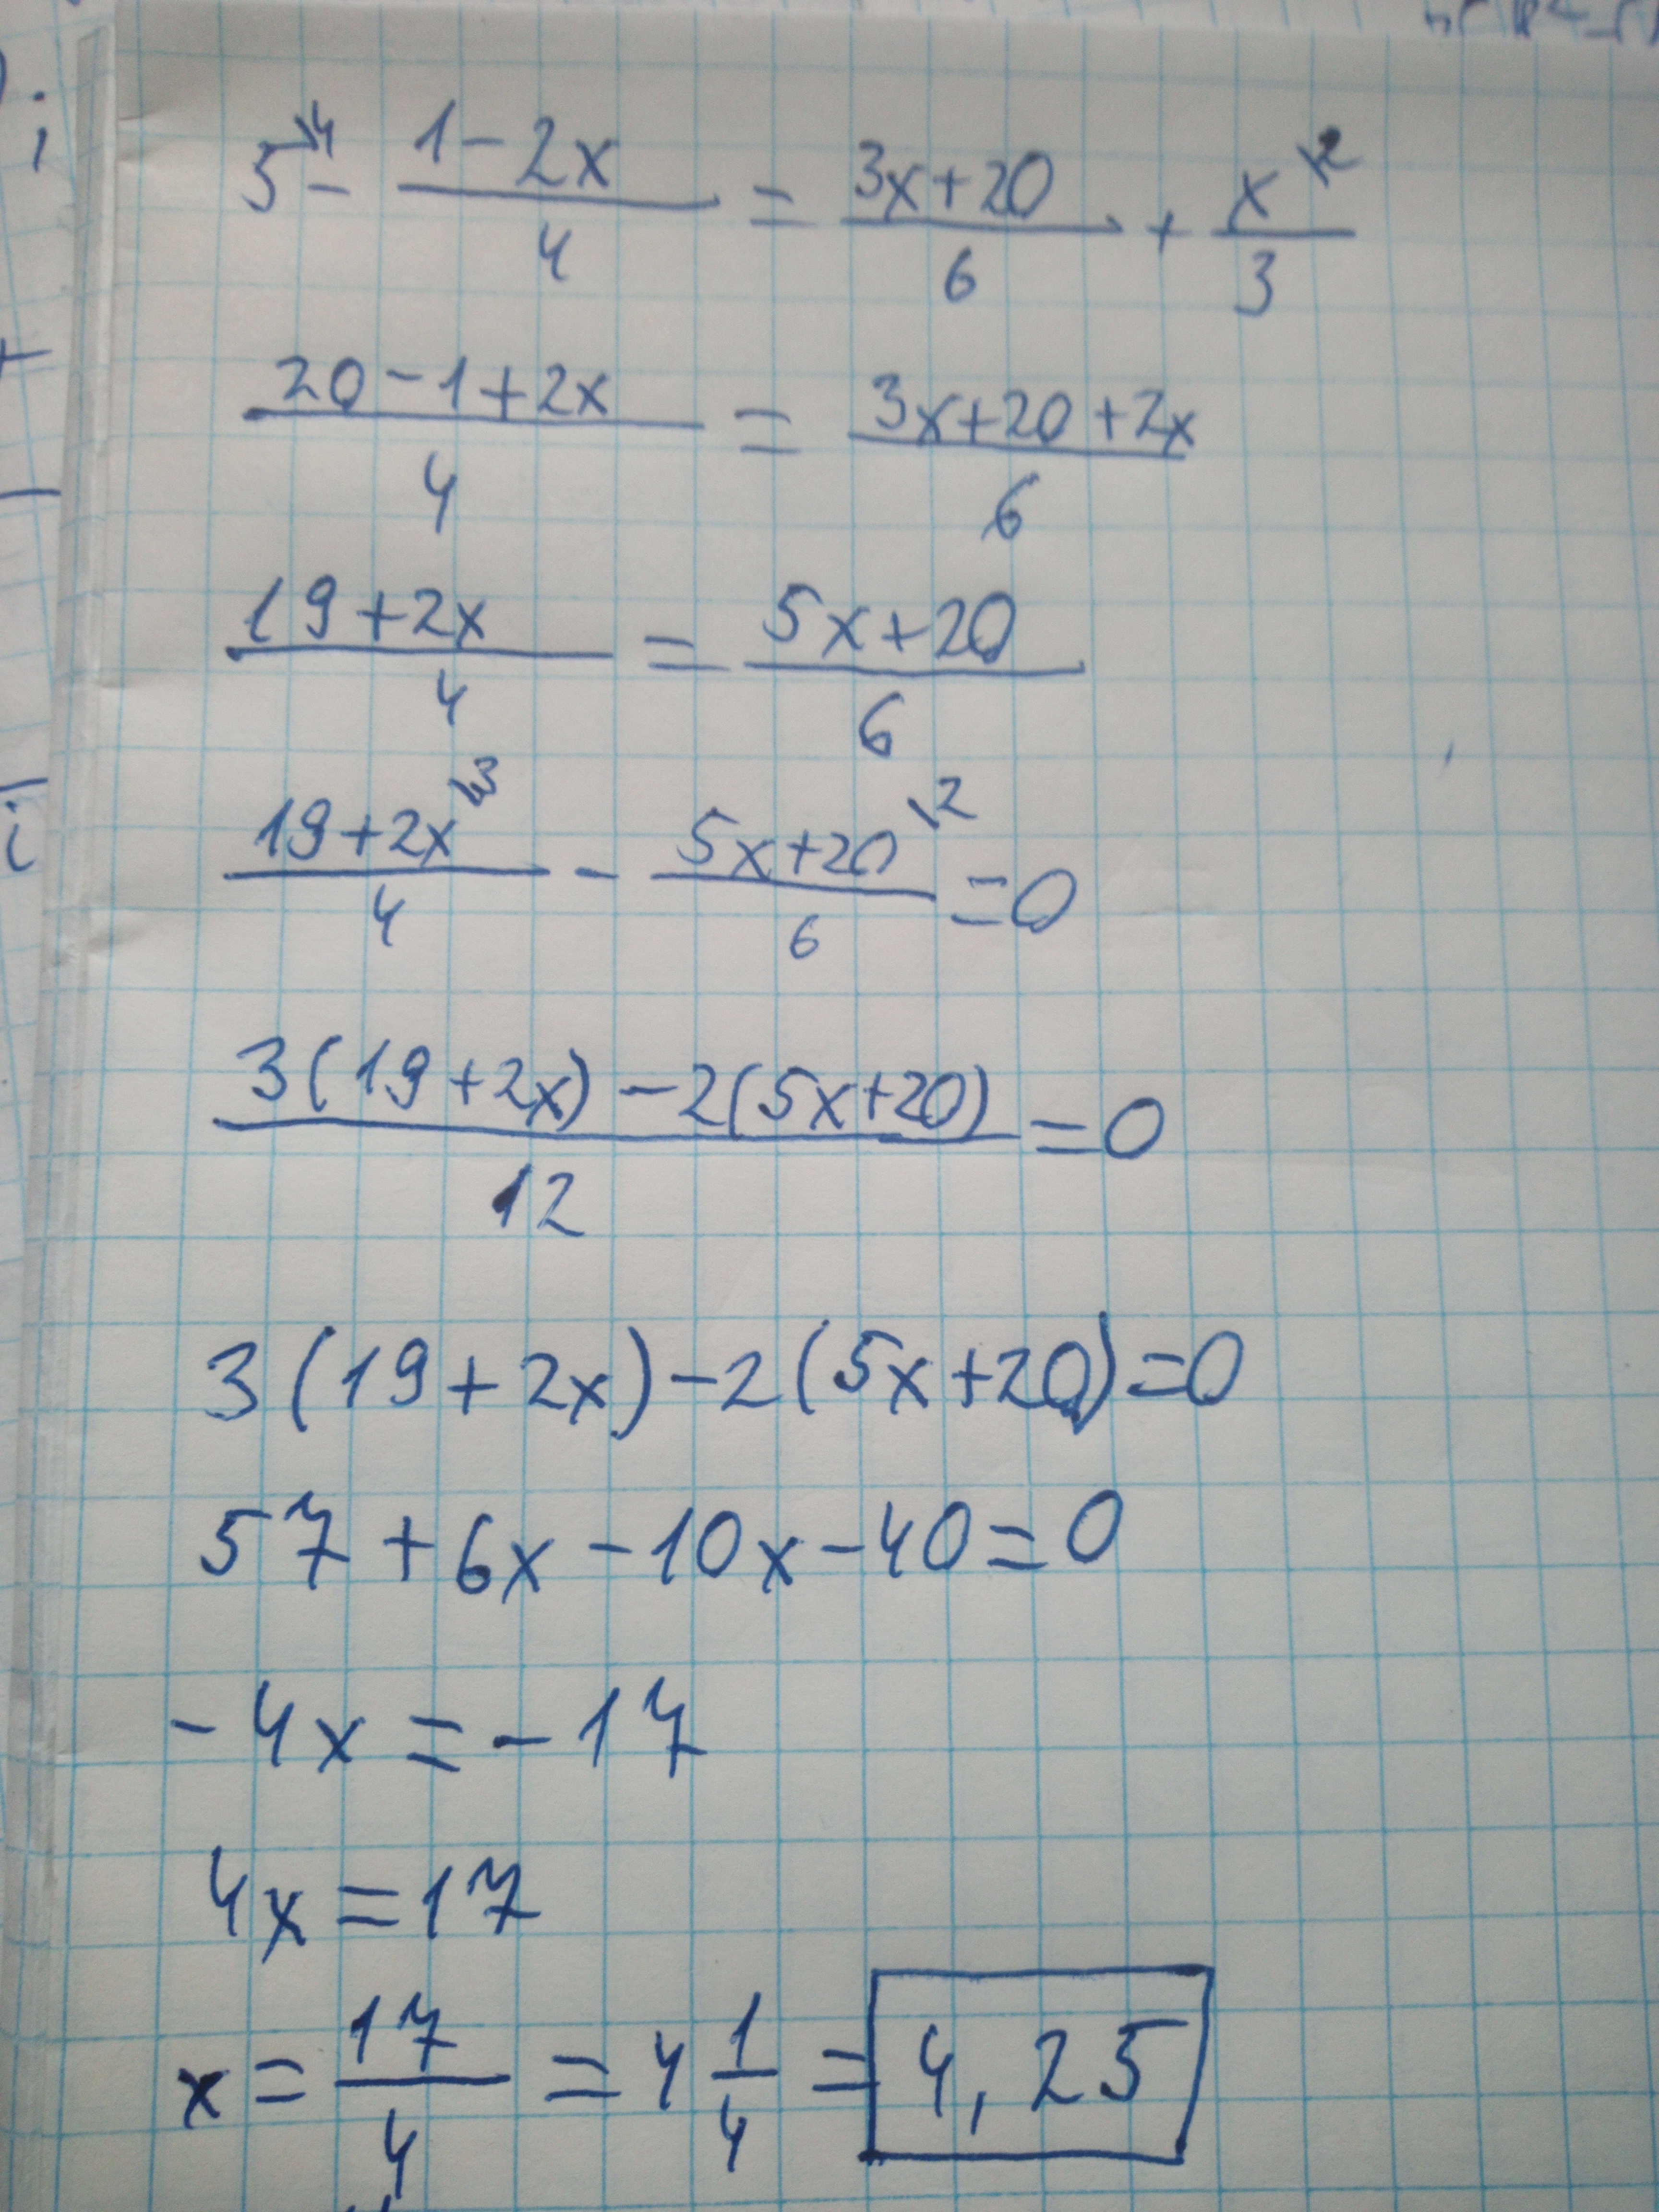 5^{\4} - (1-2x)/4 = (3x+20)/6 + x^{\2}/3
(20-1+2x)/4 = (3x+20+2x)/6
(19+2x)/4 = (5x+20)/6
(19+2x)^{\3}/4 - (5x+20)^{\2}/6 = 0
(3(19+2x)-2(5x+20))/12 = 0
3(19+2x)-2(5x+20)=0
57+6x-10x-40=0
-4x=-17
4x=17
x = 17/4 = 4 1/4 = 4,25